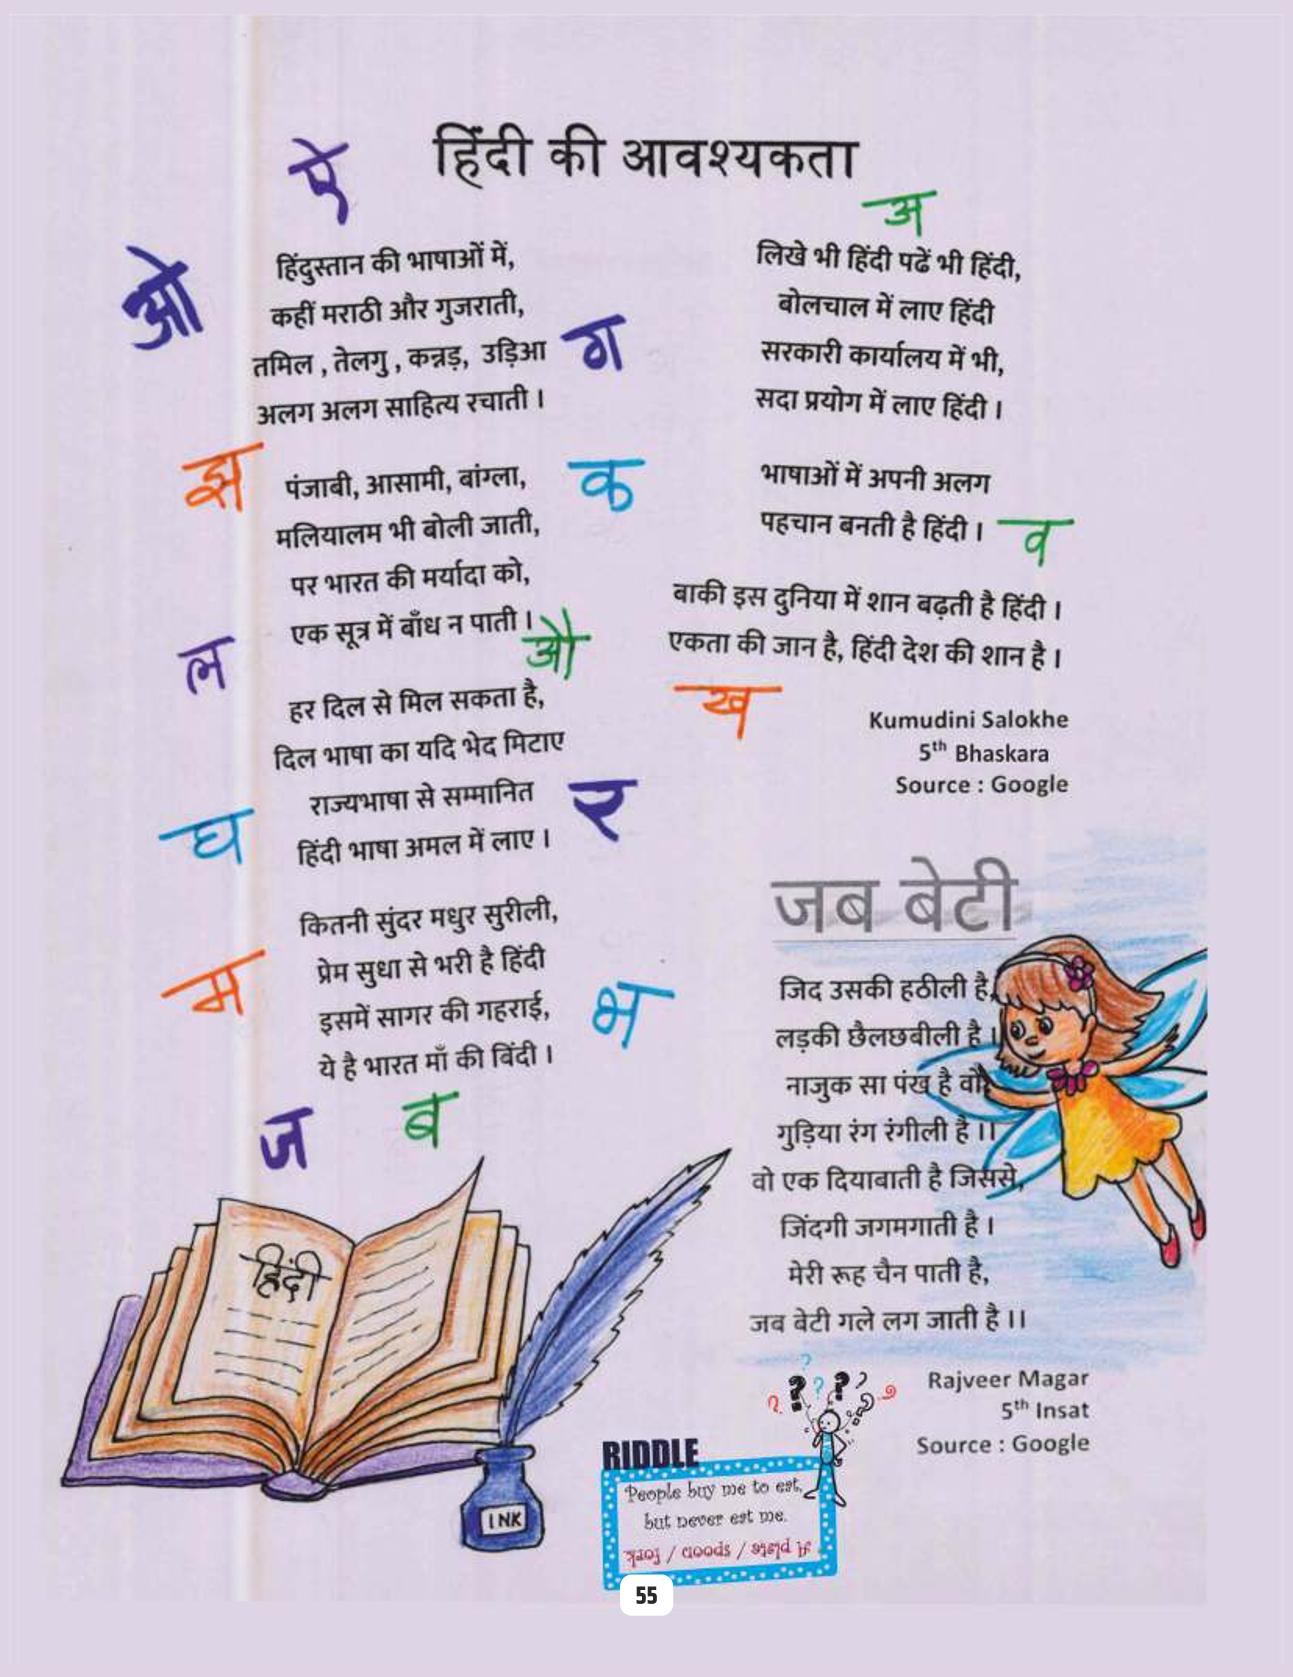 हिंदी की आवश्यकता
ऐ
ओ
हिंदुस्तान की भाषाओं में,
कहीं मराठी और गुजराती,
तमिल , तेलगु , कन्नड़, उड़िआ
अलग अलग साहित्य रचाती ।
ग
झ
पंजाबी, आसामी, बांग्ला,
मलियालम भी बोली जाती,
पर भारत की मर्यादा को,
एक सूत्र में बाँध न पाती ।
क
ल
औ
हर दिल से मिल सकता है,
दिल भाषा का यदि भेद मिटाए
राज्यभाषा से सम्मानित
हिंदी भाषा अमल में लाए ।
घ
र
कितनी सुंदर मधुर सुरीली,
प्रेम सुधा से भरी है हिंदी
इसमें सागर की गहराई,
ये है भारत माँ की बिंदी ।
म
भ
ज
ब
हिंदी
INK
अ
लिखे भी हिंदी पढें भी हिंदी,
बोलचाल में लाए हिंदी
सरकारी कार्यालय में भी,
सदा प्रयोग में लाए हिंदी ।
भाषाओं में अपनी अलग
पहचान बनती है हिंदी ।
व
बाकी इस दुनिया में शान बढ़ती है हिंदी ।
एकता की जान है, हिंदी देश की शान है ।
ख
Kumudini Salokhe
5th Bhaskara
Source : Google
जब बेटी
जिद उसकी हठीली है,
लड़की छैलछबीली है ।
नाजुक सा पंख है वो,
गुड़िया रंग रंगीली है ।।
वो एक दियाबाती है जिससे,
जिंदगी जगमगाती है ।
मेरी रूह चैन पाती है,
जब बेटी गले लग जाती है ।।
Rajveer Magar
5th Insat
Source : Google
RIDDLE
People buy me to eat,
but never eat me.
af plate / spoon / fork
55